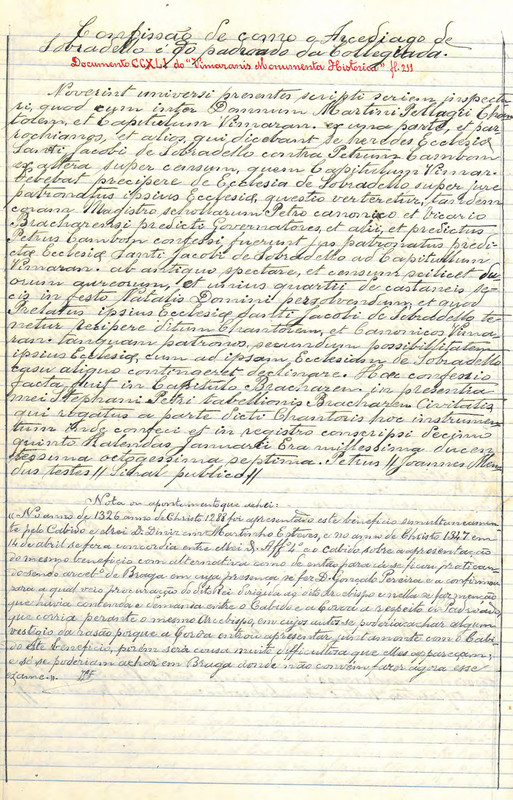 Confissão de como o Arcediago de
Sobradello é do padroado da Collegiada.
Documento CCXLI do "Vimaranis Monumenta Historica" fl. 211
Noverint universi presentes scripti seriem inspectu-
ri, quod cum inter Domnum Martini Pellagii Chan
totem, et Capitulum Vimaran. ex una parte, et par
rochianos, et alios, qui dicebant se heredes Ecclesiæ
Santi Jacobi de Sobradello contra Petrum Cambom
ex altera super censum, quem Capitulum Vimar.
debebat precipere de Ecclesia de Sobradello super jure
patronatus ipsius Ecclesiæ, questio verteretur, tandem
coram Magistro scholarum Petro canonico et vicario
Bracharensi predicti Governatores, et alii, et predictus
Petrus Cambom confessi fuerunt jus patronatus predi-
ctæ Ecclesiæ Santi Jacobi de Sobradello ad Capitulum
Vimaran. ab antiquo spectare, et censum scilicet du
orum aureorum, et unius quartii de castaneis se-
cis in festo Natalis Domini persolvendum, et quod
Prelatus ipsius Ecclesiæ Santi Jacobi de Sobradello te-
netur recipere ditum Chantotem, et Canonicos Vima-
ran. tanquam patronos, secundum possibilitatem
ipsius Ecclesiæ, cum ad ipsam Ecclesiam de Sobradello
casu aliquo contingeret declinare. Hæc confessio
facta fuit in Capitulo Bracharen. in presentia
mei Stephani Petri tabellionis Bracharen. Civitatis
qui rogatus a parte dicti Chantoris hoc instrumen-
tum inde confeci et in registro conscripsi decimo
quinto Kalendas Januarii Era millessima ducen
tessima octogessima septima. Petrus // Joannes Men
dus testes // Sinal publico //
Nota ou apontamento que achei:
«No anno de 1326 anno de Christo 1288 foi apresentado este beneficio simultaneamen
te pelo Cabido e elrei D. Diniz em Martinho Esteves, e no anno de Christo 1347 em
14 de abril se fez a concordia entre elrei D. Affº 4º e o cabido sobre a apresentação
do mesmo beneficio com alternativa como de então para cá se ficou pratican-
do sendo arcebº de Braga em cuja presença se fez D. Gonçalo Pereira e a confirmou
para a qual veio procuração do dito Rei dirigida ao dito Arcebispo e nella se faz menção
que havia contenda e demanda entre o Cabido e a Coroa a respeito do Padroado
que corria perante o mesmo Arcebispo, em cujos autos se poderia achar algum
vestigio da rasão porque a Coroa entrou apresentar juntamente com o Cabi-
do este beneficio, porem será cousa muito difficultosa que elles appareçam;
e só se poderiam achar em Braga donde não convém fazer agora esse
exame».